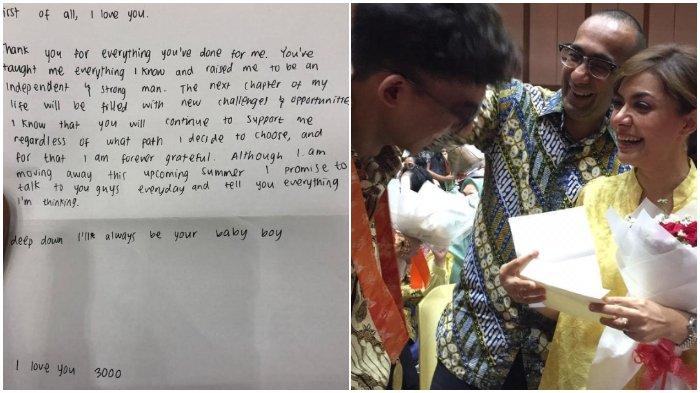 First of all, I love you.
Thank you for everything you've done for me. You've
taught me everything I know and raised me to be an
independent & strong man. The next chapter of my
life will be filled with new challenges & opportunities
I know that you will continue to support me
regardless of what path I decide to choose, and
for that I am forever grateful. Although I am
moving away this upcoming summer I promise to
talk to you guys everyday and tell you everything
I'm thinking.
deep down I'll always be your baby boy
I love you 3000